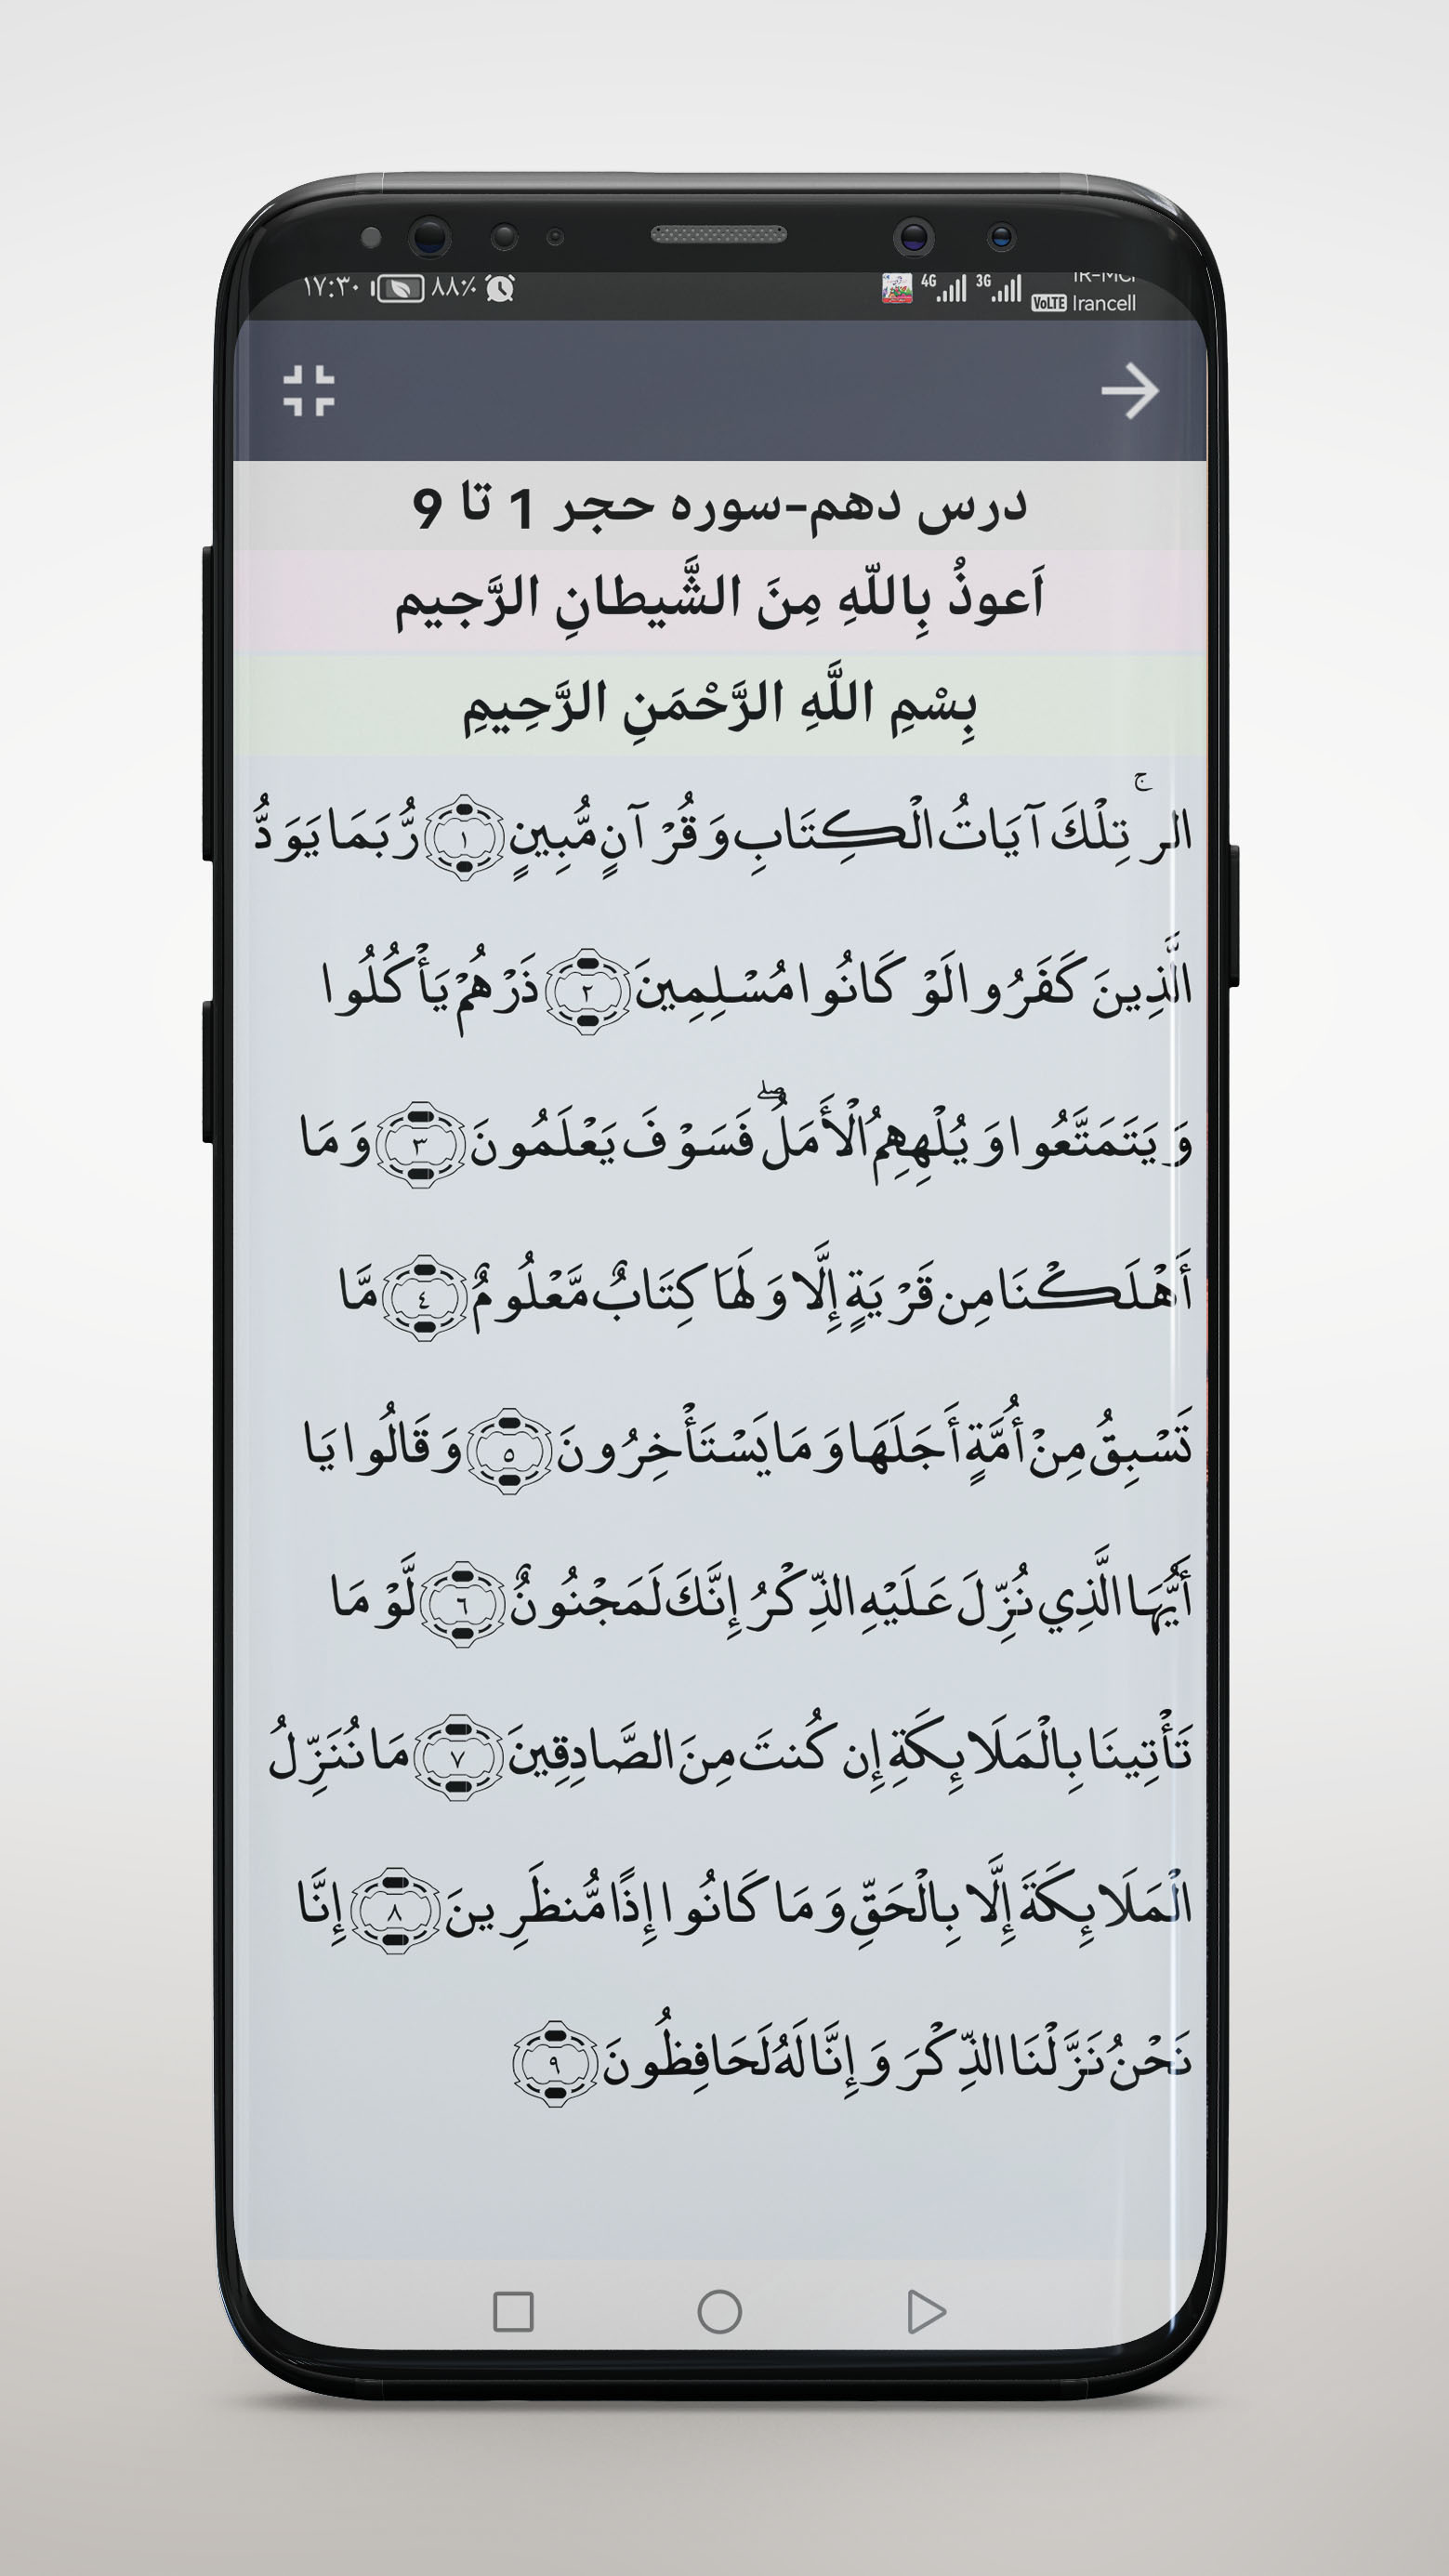 ۱۷:۳۰ ۸۸٪ 4G 3G IR-MCI
VoLTE Irancell
درس دهم-سوره حجر 1 تا 9
اَعوذُ بِاللّهِ مِنَ الشَّيطانِ الرَّجيم
بِسْمِ اللَّهِ الرَّحْمَنِ الرَّحِيمِ
الر ۚ تِلْكَ آيَاتُ الْكِتَابِ وَقُرْآنٍ مُّبِينٍ ﴿١﴾ رُّبَمَا يَوَدُّ
الَّذِينَ كَفَرُوا لَوْ كَانُوا مُسْلِمِينَ ﴿٢﴾ ذَرْهُمْ يَأْكُلُوا
وَيَتَمَتَّعُوا وَيُلْهِهِمُ الْأَمَلُ ۖ فَسَوْفَ يَعْلَمُونَ ﴿٣﴾ وَمَا
أَهْلَكْنَا مِن قَرْيَةٍ إِلَّا وَلَهَا كِتَابٌ مَّعْلُومٌ ﴿٤﴾ مَّا
تَسْبِقُ مِنْ أُمَّةٍ أَجَلَهَا وَمَا يَسْتَأْخِرُونَ ﴿٥﴾ وَقَالُوا يَا
أَيُّهَا الَّذِي نُزِّلَ عَلَيْهِ الذِّكْرُ إِنَّكَ لَمَجْنُونٌ ﴿٦﴾ لَّوْ مَا
تَأْتِينَا بِالْمَلَائِكَةِ إِن كُنتَ مِنَ الصَّادِقِينَ ﴿٧﴾ مَا نُنَزِّلُ
الْمَلَائِكَةَ إِلَّا بِالْحَقِّ وَمَا كَانُوا إِذًا مُّنظَرِينَ ﴿٨﴾ إِنَّا
نَحْنُ نَزَّلْنَا الذِّكْرَ وَإِنَّا لَهُ لَحَافِظُونَ ﴿٩﴾